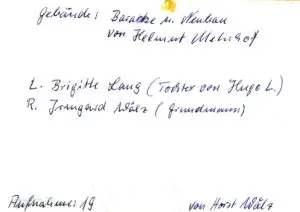 Gebäude: Baracke u. Neubau
von Helmut Mehrhof
L. Brigitte Lang (Tochter von Hugo L.)
R. Irmgard Wälz (Grundmann)
Aufnahme: 19
von Horst Wälz